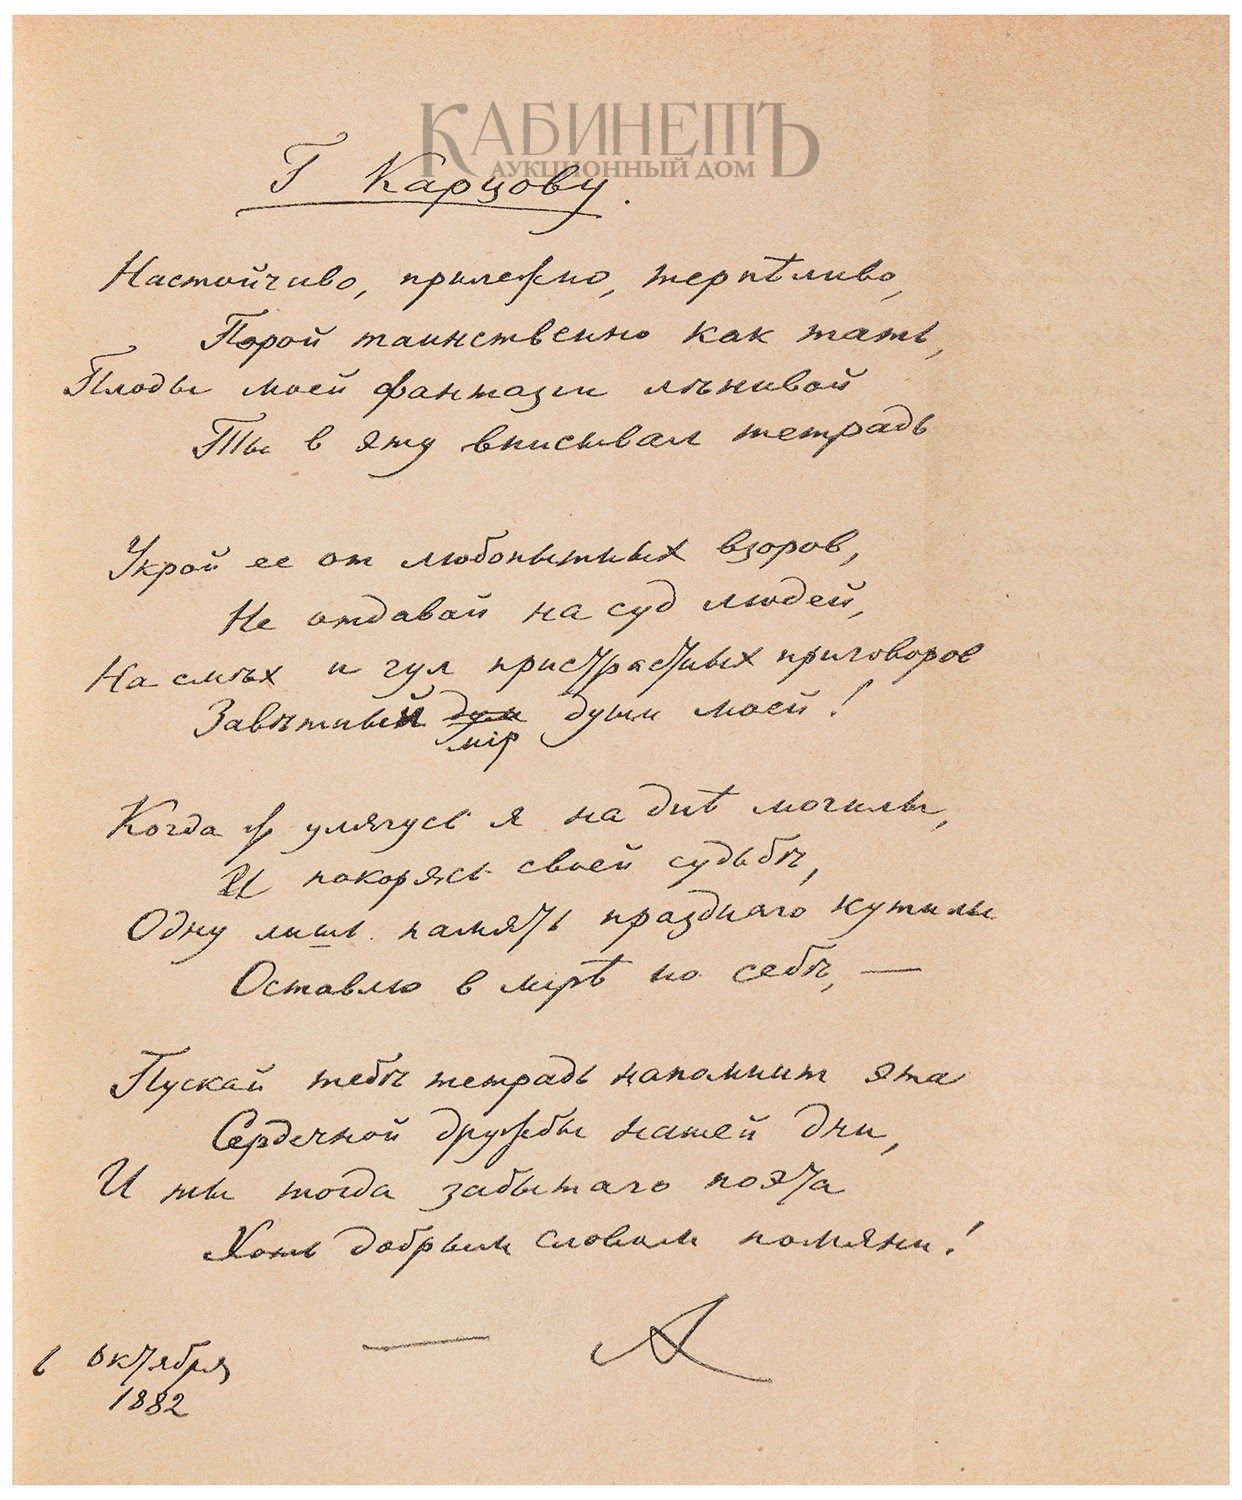 КАБИНЕТЪ
АУКЦИОННЫЙ ДОМ
Г Карцову.
Настойчиво, прилежно, терпѣливо,
Порой таинственно как тать,
Плоды моей фантазіи лѣнивой
Ты в эту вписывал тетрадь
Укрой ее от любопытных взоров,
Не отдавай на суд людей,
На смѣх и гул пристрастных приговоров
Завѣтный думы мір души моей!
Когда ж улягусь я на днѣ могилы,
И покорясь своей судьбѣ,
Одну лишь память празднаго кутилы
Оставлю в мірѣ по себѣ, —
Пускай тебѣ тетрадь напомнит эта
Сердечной дружбы нашей дни,
И ты тогда забытаго поэта
Хоть добрым словом помяни!
— А
6 октября
1882